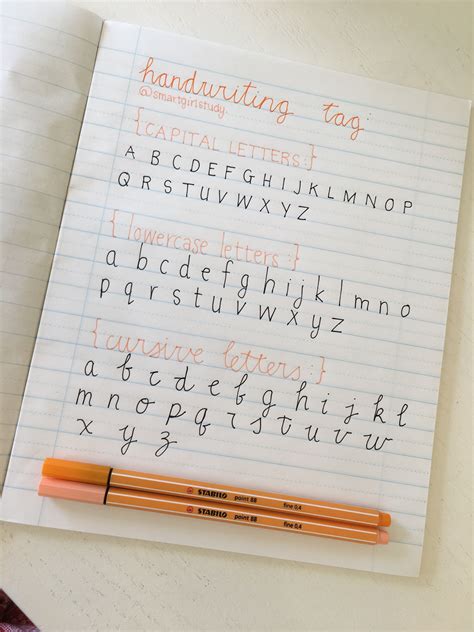 handwriting tag:
@smartgirlstudy
{CAPITAL LETTERS:}
A B C D E F G H I J K L M N O P
Q R S T U V W X Y Z
{lowercase letters:}
a b c d e f g h i j k l m n o
p q r s t u v w x y z
{cursive letters:}
a b c d e f g h i j k l
m n o p q r s t u v w
x y z
STABILO point 88 fine 0,4
STABILO point 88 fine 0,4